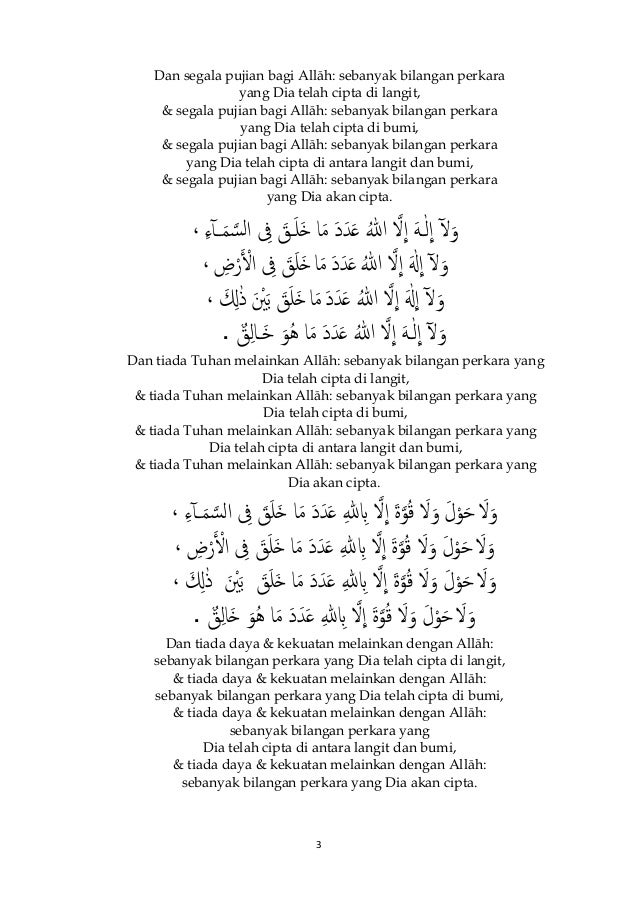 Dan segala pujian bagi Allāh: sebanyak bilangan perkara
yang Dia telah cipta di langit,
& segala pujian bagi Allāh: sebanyak bilangan perkara
yang Dia telah cipta di bumi,
& segala pujian bagi Allāh: sebanyak bilangan perkara
yang Dia telah cipta di antara langit dan bumi,
& segala pujian bagi Allāh: sebanyak bilangan perkara
yang Dia akan cipta.
وَلَآ إِلَـٰهَ إِلَّا اللهُ عَدَدَ مَا خَلَـقَ فِى السَّمَـآءِ ،
وَلَآ إِلَٰهَ إِلَّا اللهُ عَدَدَ مَا خَلَقَ فِى الْأَرْضِ ،
وَلَآ إِلَٰهَ إِلَّا اللهُ عَدَدَ مَا خَلَقَ بَيْنَ ذَٰلِكَ ،
وَلَآ إِلَـٰهَ إِلَّا اللهُ عَدَدَ مَا هُوَ خَـالِقٌ .
Dan tiada Tuhan melainkan Allāh: sebanyak bilangan perkara yang
Dia telah cipta di langit,
& tiada Tuhan melainkan Allāh: sebanyak bilangan perkara yang
Dia telah cipta di bumi,
& tiada Tuhan melainkan Allāh: sebanyak bilangan perkara yang
Dia telah cipta di antara langit dan bumi,
& tiada Tuhan melainkan Allāh: sebanyak bilangan perkara yang
Dia akan cipta.
وَلَا حَوْلَ وَلَا قُوَّةَ إِلَّا بِاللهِ عَدَدَ مَا خَلَقَ فِى السَّمَـآءِ ،
وَلَا حَوْلَ وَلَا قُوَّةَ إِلَّا بِاللهِ عَدَدَ مَا خَلَقَ فِى الْأَرْضِ ،
وَلَا حَوْلَ وَلَا قُوَّةَ إِلَّا بِاللهِ عَدَدَ مَا خَلَقَ بَيْنَ ذَٰلِكَ ،
وَلَا حَوْلَ وَلَا قُوَّةَ إِلَّا بِاللهِ عَدَدَ مَا هُوَ خَالِقٌ .
Dan tiada daya & kekuatan melainkan dengan Allāh:
sebanyak bilangan perkara yang Dia telah cipta di langit,
& tiada daya & kekuatan melainkan dengan Allāh:
sebanyak bilangan perkara yang Dia telah cipta di bumi,
& tiada daya & kekuatan melainkan dengan Allāh:
sebanyak bilangan perkara yang
Dia telah cipta di antara langit dan bumi,
& tiada daya & kekuatan melainkan dengan Allāh:
sebanyak bilangan perkara yang Dia akan cipta.
3